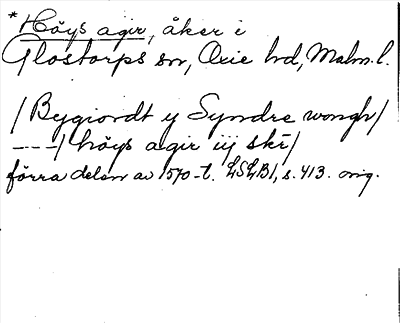 *Höys agir, åker i
Glostorps sn, Oxie hd, Malm. l.
/Bygiordt y Syndre wongh/
---/höys agir iij skr/
förra delen av 1570-t. LSLB1, s. 413. orig.